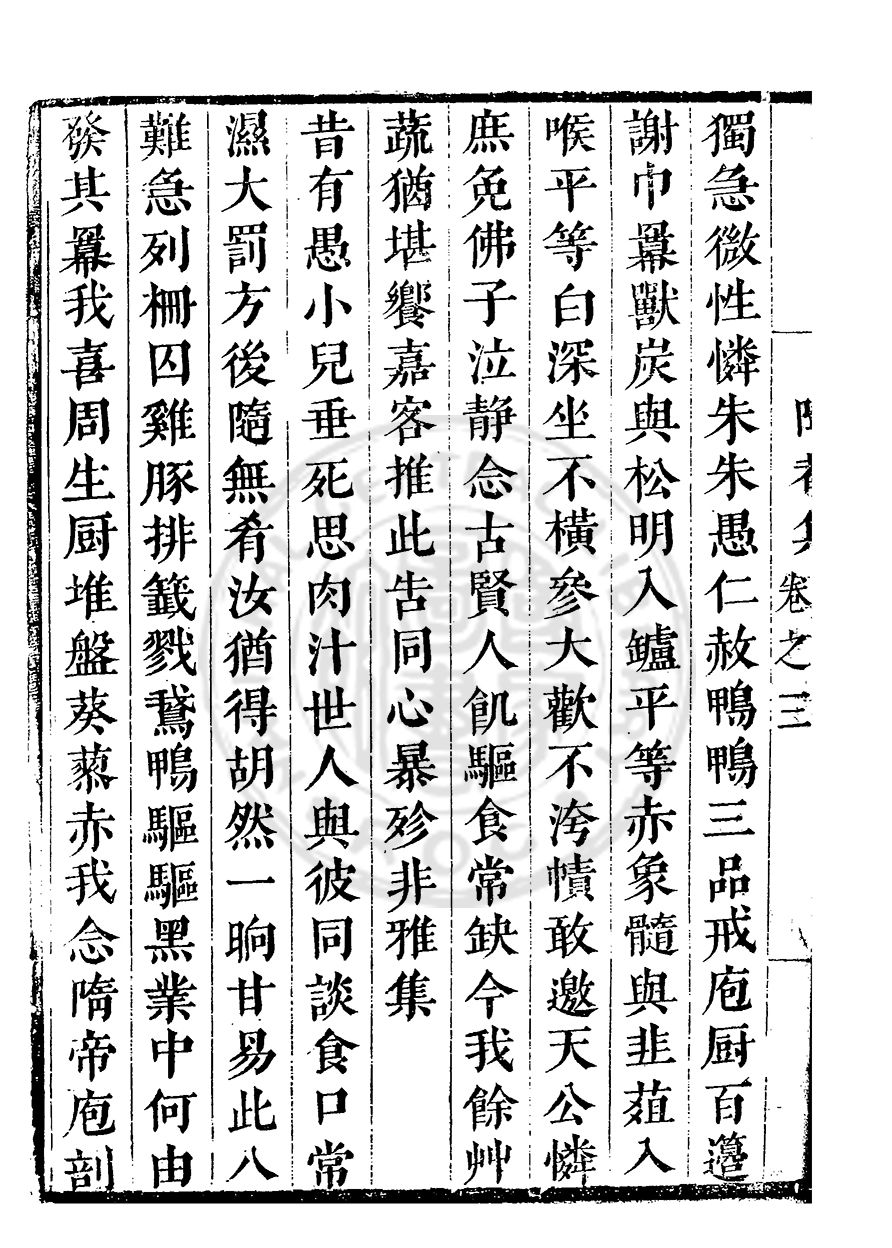 獨急微性憐朱朱愚仁赦鴨鴨三品戒庖厨百籩
謝巾羃獸炭與松明入鑪平等赤象髓與韭葅入
喉平等白深坐不橫參大歡不洿幘敢邀天公憐
庶免佛子泣静念古賢人飢驅食常缺今我餘艸
蔬猶堪饗嘉客推此告同心暴殄非雅集
昔有愚小兒垂死思肉汁世人與彼同談食口常
濕大罰方後隨無肴汝猶得胡然一晌甘易此八
難急列柵囚雞豚排籤戮鵞鴨驅驅黑業中何由
發其羃我喜周生厨堆盤葵蓼赤我念隋帝庖剖
卷之三